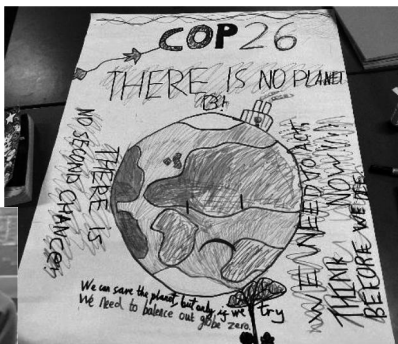 COP26
THERE IS NO PLANET
B!
THERE IS
NO SECOND CHANCE
WE NEED TO ACT
NOW!!!
THINK
BEFORE WE
We can save the planet, but only if we try
We need to balence out globe zero.